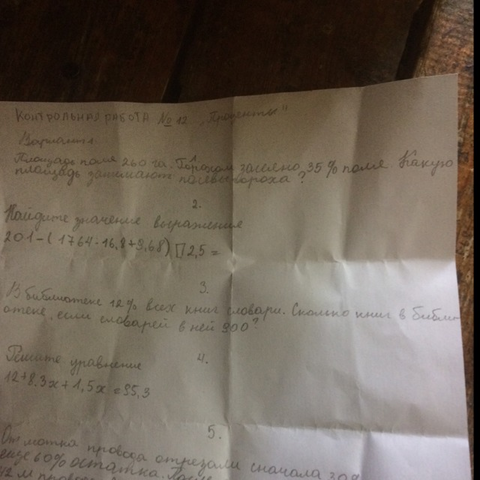 КОНТРОЛЬНАЯ РАБОТА № 12 „Проценты"
Вариант 1.
1
Площадь поля 260 га. Горохом засеяно 35 % поля. Какую
площадь занимают посевы гороха?
2.
Найдите значение выражения
201-(1764-16,8+9,68) 2,5 =
3.
В библиотеке 12% всех книг словари. Сколько книг в библи
отеке, если словарей в ней 900?
4.
Решите уравнение
12+8,3х+1,5х=95,3
5.
От мотка провода отрезали сначала 30%
еще 60% остатка.